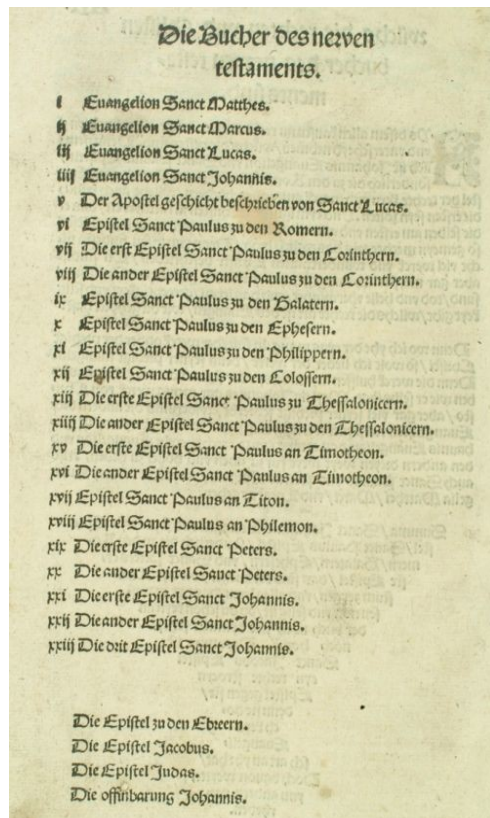 Die Bucher des newen
testaments.
i Euangelion Sanct Matthes.
ij Euangelion Sanct Marcus.
iij Euangelion Sanct Lucas.
iiij Euangelion Sanct Johannis.
v Der Apostel geschicht beschrieben von Sanct Lucas.
vi Epistel Sanct Paulus zu den Romern.
vij Die erst Epistel Sanct Paulus zu den Corinthern.
viij Die ander Epistel Sanct Paulus zu den Corinthern.
ix Epistel Sanct Paulus zu den Galatern.
x Epistel Sanct Paulus zu den Ephesern.
xi Epistel Sanct Paulus zu den Philippern.
xij Epistel Sanct Paulus zu den Colossern.
xiij Die erste Epistel Sanct Paulus zu Thessalonicern.
xiiij Die ander Epistel Sanct Paulus zu den Thessalonicern.
xv Die erste Epistel Sanct Paulus an Timotheon.
xvi Die ander Epistel Sanct Paulus an Timotheon.
xvij Epistel Sanct Paulus an Titon.
xviij Epistel Sanct Paulus an Philemon.
xix Die erste Epistel Sanct Peters.
xx Die ander Epistel Sanct Peters.
xxi Die erste Epistel Sanct Johannis.
xxij Die ander Epistel Sanct Johannis.
xxiij Die drit Epistel Sanct Johannis.
Die Epistel zu den Ebreern.
Die Epistel Jacobus.
Die Epistel Judas.
Die offinbarung Johannis.